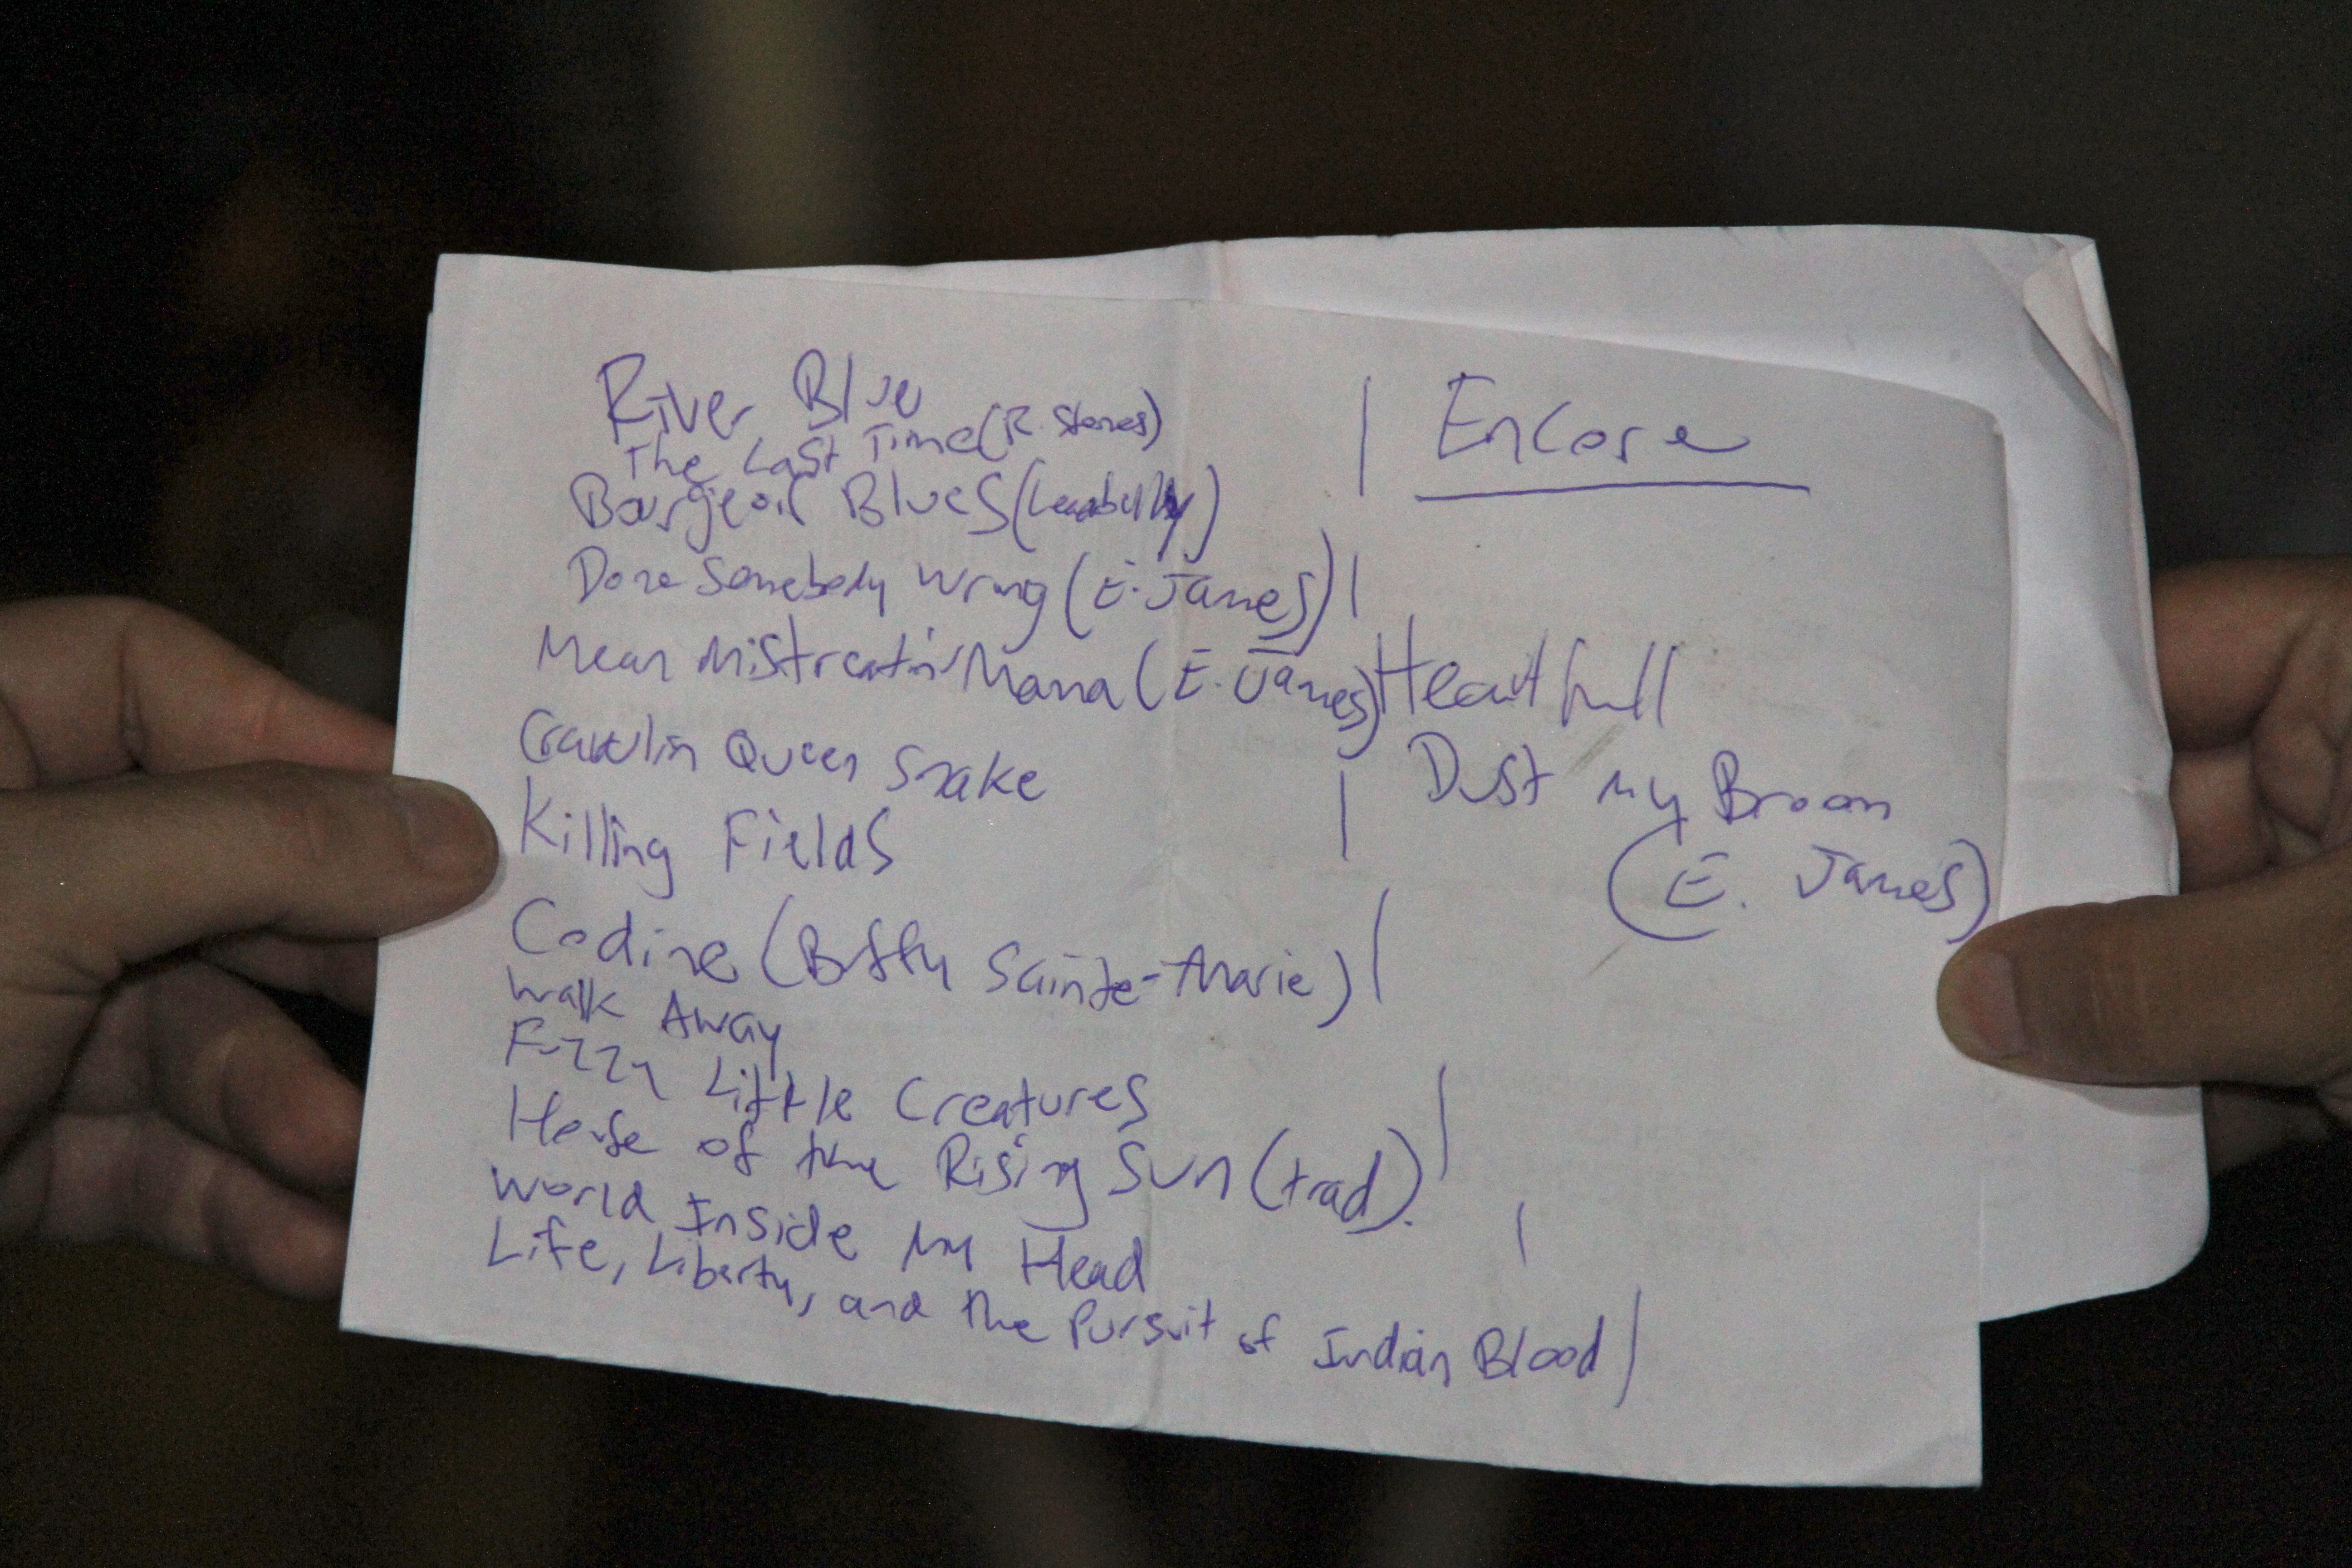 River Blue
The Last Time (R. Stones)
Bourgeois Blues (Leadbelly)
Done Somebody Wrong (E. James)
Mean Mistreatin' Mama (E. James)
Crawlin Queen Snake
Killing Fields
Codine (Buffy Sainte-Marie)
Walk Away
Fuzzy Little Creatures
House of the Rising Sun (trad).
World Inside My Head
Life, Liberty, and the Pursuit of Indian Blood
Encore
Heart full
Dust my Broom
(E. James)